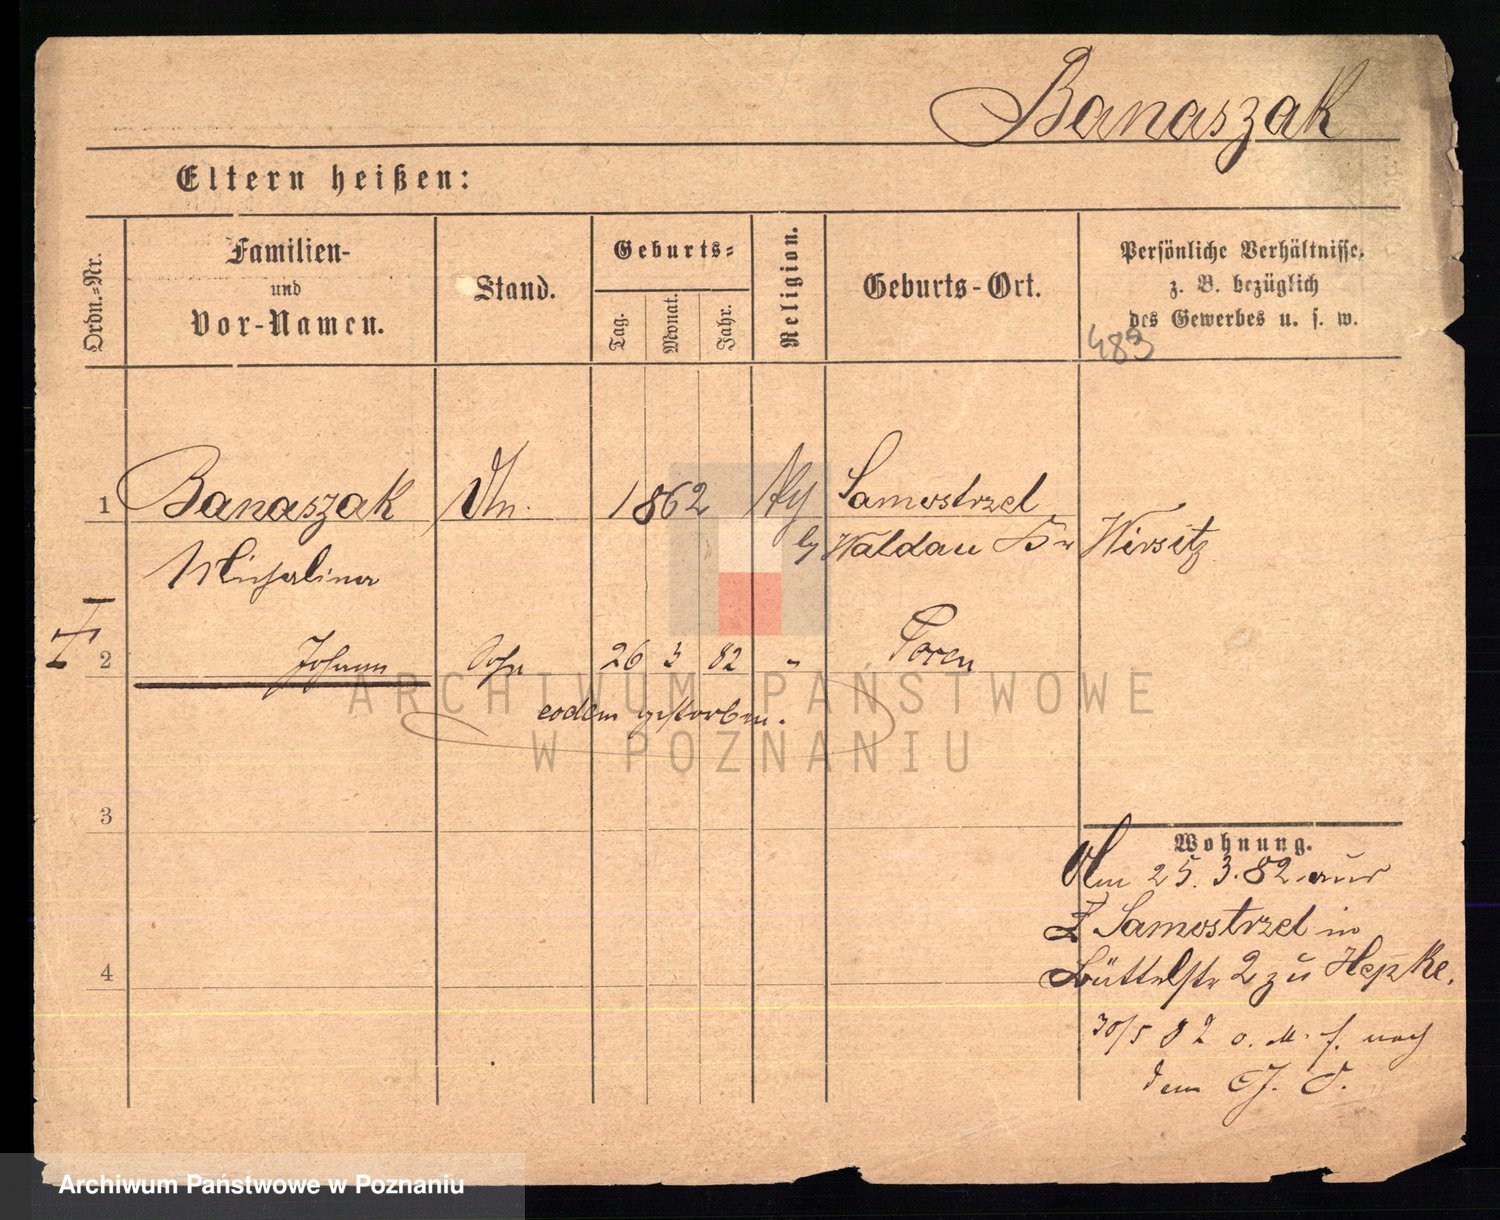 Banaszak
Eltern heißen:
Ordn.-Nr.
Familien-
und
Vor-Namen.
Stand.
Geburts-
Tag.
Monat.
Jahr.
Religion.
Geburts-Ort.
Persönliche Verhältnisse,
z. B. bezüglich
des Gewerbes u. s. w.
483
1 Banaszak 1862 Samostrzel
Michalina
by Waldau Kr Wirsitz
2 Johann Sohn 26 3 82 " Posen
eodem gestorben.
3
4
Wohnung.
Am 25. 3. 82 aus
Samostrzel in
Büttelstr 2 zu Hepke.
30/5 82 o. M. f. nach
dem
ARCHIWUM PAŃSTWOWE
W POZNANIU
Archiwum Państwowe w Poznaniu